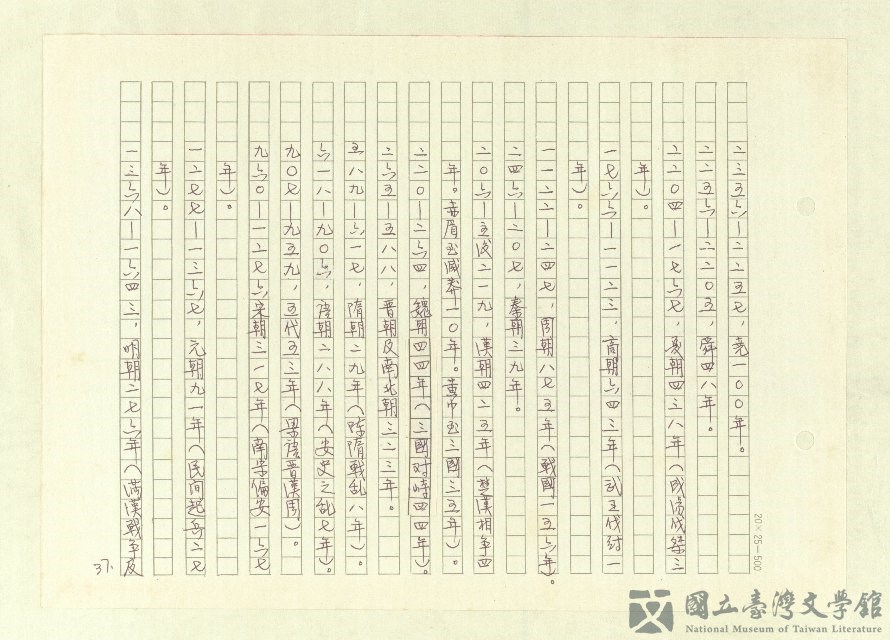 二三五六—二二五七，堯一〇〇年。
二二五六—二二〇五，舜四八年。
二二〇四—一七六七，夏朝四三八年（成湯伐桀三
年）。
一七六六—一一二三，商朝六四三年（武王伐紂一
年）。
一一二二—二四七，周朝八七五年（戰國一五六年）。
二四六—二〇七，秦朝三九年。
二〇六—主後二一九，漢朝四二五年（楚漢相争四
年。赤眉至滅莽一〇年。黃巾至三國三五年）。
二二〇—二六四，魏朝四四年（三國対峙四四年）。
二六五—五八八，晉朝及南北朝三二三年。
五八九—六一七，隋朝二九年（陈隋戰乱八年）。
六一八—九〇六，唐朝二八八年（安史之乱七年）。
九〇七—九五九，五代五三年（梁唐晉漢周）。
九六〇—一二七六宋朝三一七年（南宋偏安一六七
年）。
一二七七—一三六七，元朝九一年（民间起兵二七
年）。
一三六八—一六四三，明朝二七六年（满漢戰争及
37.
20×25—500
國立臺灣文学館
National Museum of Taiwan Literature